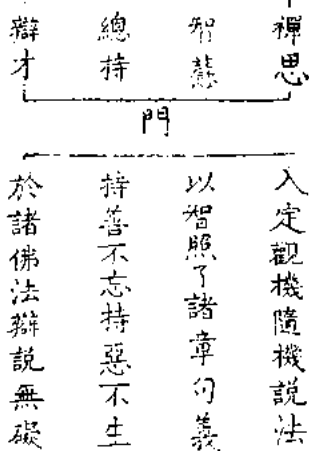 禪思
智慧
總持
辯才
門
入定觀機隨機説法
以智照了諸章句義
持善不忘持惡不生
於諸佛法辯説無礙